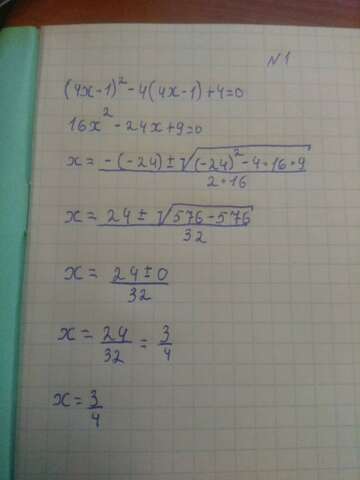 N1
(4x-1)² - 4(4x-1) + 4 = 0
16x² - 24x + 9 = 0
x = -(-24) ± √(-24)² - 4 * 16 * 9 / 2 * 16
x = 24 ± √576 - 576 / 32
x = 24 ± 0 / 32
x = 24 / 32 = 3 / 4
x = 3 / 4